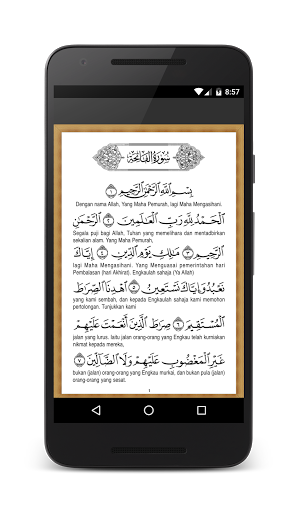 8:57
سورة الفاتحة
بِسْمِ ٱللَّهِ ٱلرَّحْمَٰنِ ٱلرَّحِيمِ ١
Dengan nama Allah, Yang Maha Pemurah, lagi Maha Mengasihani.
ٱلْحَمْدُ لِلَّهِ رَبِّ ٱلْعَٰلَمِينَ ٢ ٱلرَّحْمَٰنِ
Segala puji bagi Allah, Tuhan yang memelihara dan mentadbirkan
sekalian alam. Yang Maha Pemurah,
ٱلرَّحِيمِ ٣ مَٰلِكِ يَوْمِ ٱلدِّينِ ٤ إِيَّاكَ
lagi Maha Mengasihani. Yang Menguasai pemerintahan hari
Pembalasan (hari Akhirat). Engkaulah sahaja (Ya Allah)
نَعْبُدُ وَإِيَّاكَ نَسْتَعِينُ ٥ ٱهْدِنَا ٱلصِّرَٰطَ
yang kami sembah, dan kepada Engkaulah sahaja kami memohon
pertolongan. Tunjukkan kami
ٱلْمُسْتَقِيمَ ٦ صِرَٰطَ ٱلَّذِينَ أَنْعَمْتَ عَلَيْهِمْ
jalan yang lurus. Iaitu jalan orang-orang yang Engkau telah kurniakan
nikmat kepada mereka,
غَيْرِ ٱلْمَغْضُوبِ عَلَيْهِمْ وَلَا ٱلضَّآلِّينَ ٧
bukan (jalan) orang-orang yang Engkau murkai, dan bukan pula (jalan)
orang-orang yang sesat.
1